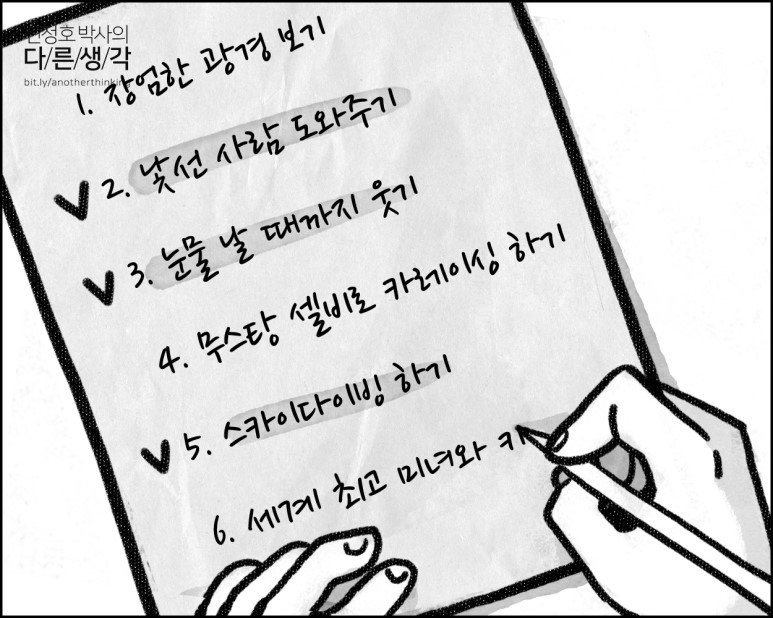 박사의
다/른/생/각
bit.ly/anotherthinking
1. 장엄한 광경 보기
2. 낯선 사람 도와주기
3. 눈물 날 때까지 웃기
4. 무스탕 셀비로 카레이싱 하기
5. 스카이다이빙 하기
6. 세계 최고 미녀와 키